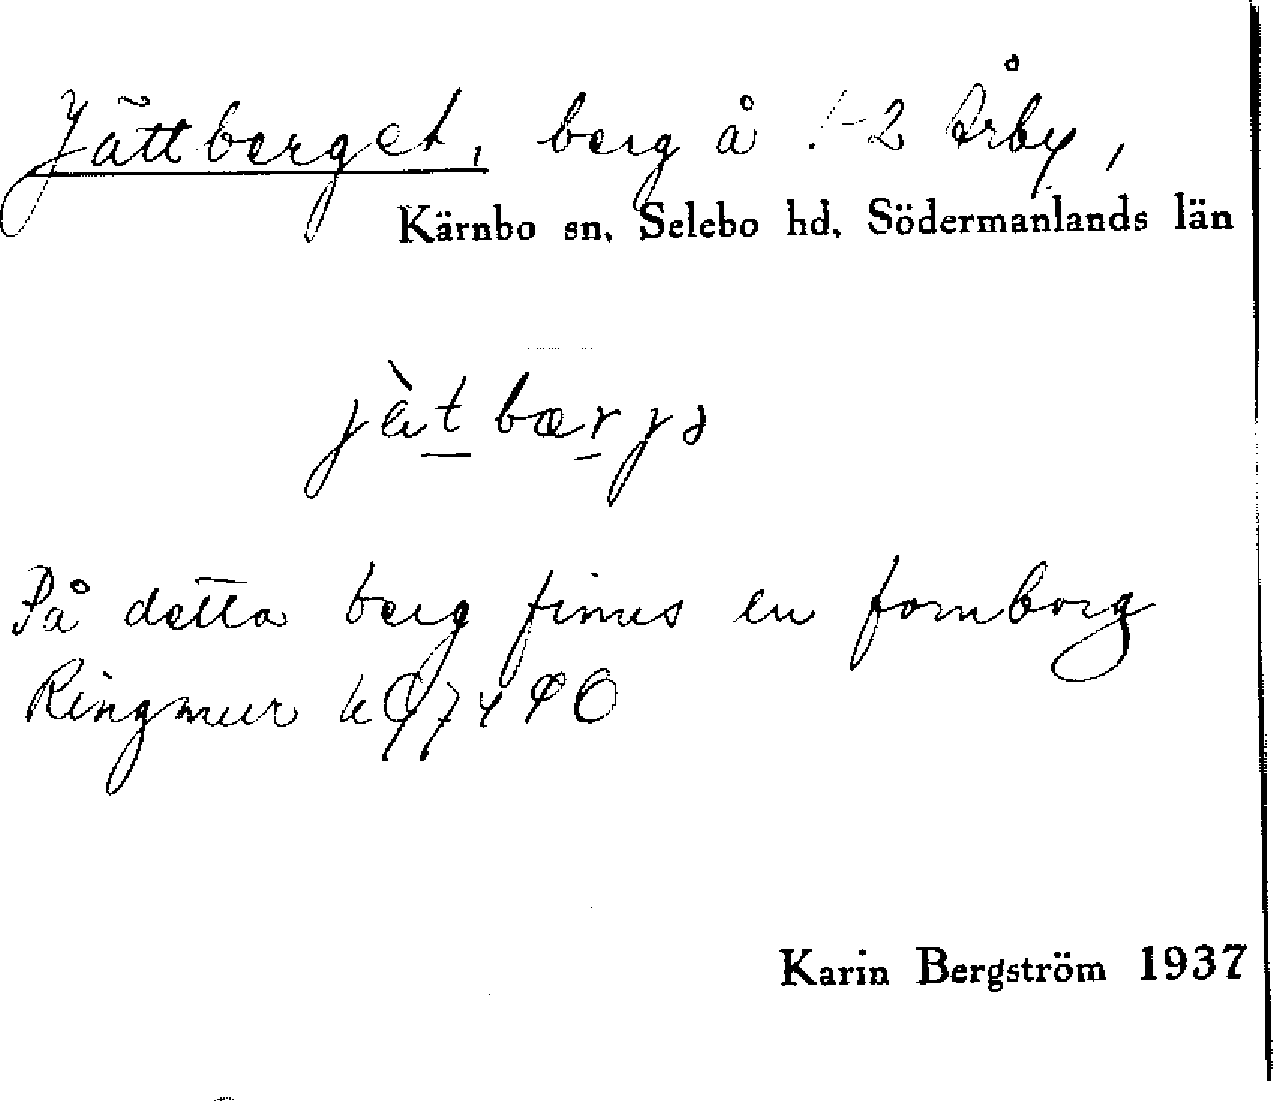 Jättberget, berg å 1-2 Årby,
Kärnbo sn, Selebo hd, Södermanlands län
jæ̀tbærjə
På detta berg finnes en fornborg
Ringmur
Karin Bergström 1937